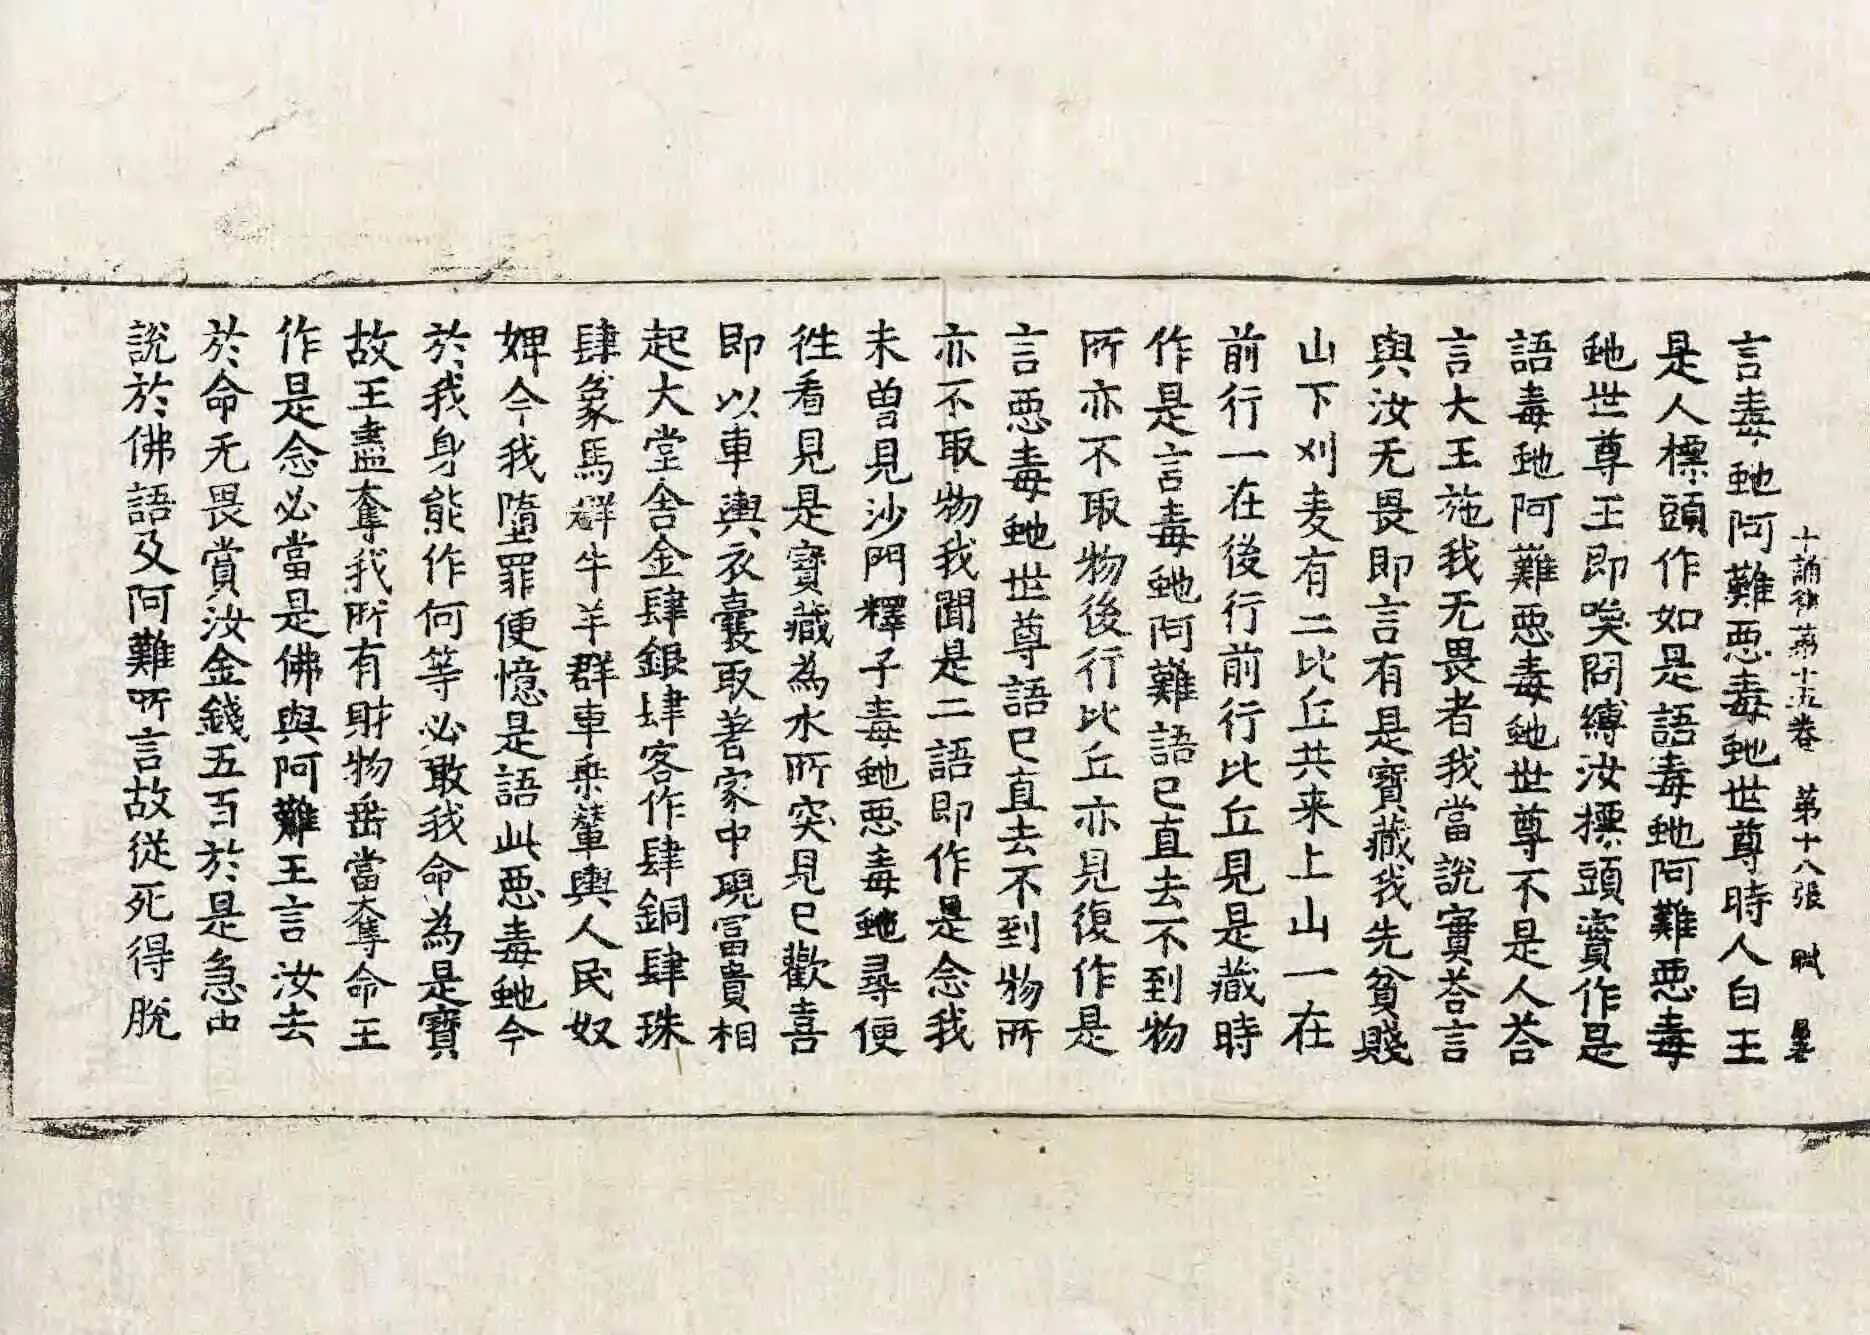 十誦律第十五卷 第十八張 賊
言毒虵阿難惡毒虵世尊時人白王
是人標頭作如是語毒虵阿難惡毒
虵世尊王即喚問縛汝標頭實作是
語毒虵阿難惡毒虵世尊不是人荅
言大王施我无畏者我當說實荅言
與汝无畏即言有是寶藏我先貧賤
山下刈麦有二比丘共来上山一在
前行一在後行前行比丘見是藏時
作是言毒虵阿難語已直去不到物
所亦不取物後行比丘亦見復作是
言惡毒虵世尊語已直去不到物所
亦不取物我聞是二語即作是念我
未曾見沙門釋子毒虵惡毒虵尋便
徃看見是寶藏為水所突見已歡喜
即以車輿衣囊取著家中現冨貴相
起大堂舍金肆銀肆客作肆銅肆珠
肆象馬群牛羊群車乗輦輿人民奴
婢今我墮罪便憶是語此惡毒虵今
於我身能作何等必敢我命為是寶
故王盡奪我所有財物垂當奪命王
作是念必當是佛與阿難王言汝去
於命无畏賞汝金錢五百於是急出
說於佛語及阿難所言故従死得脫